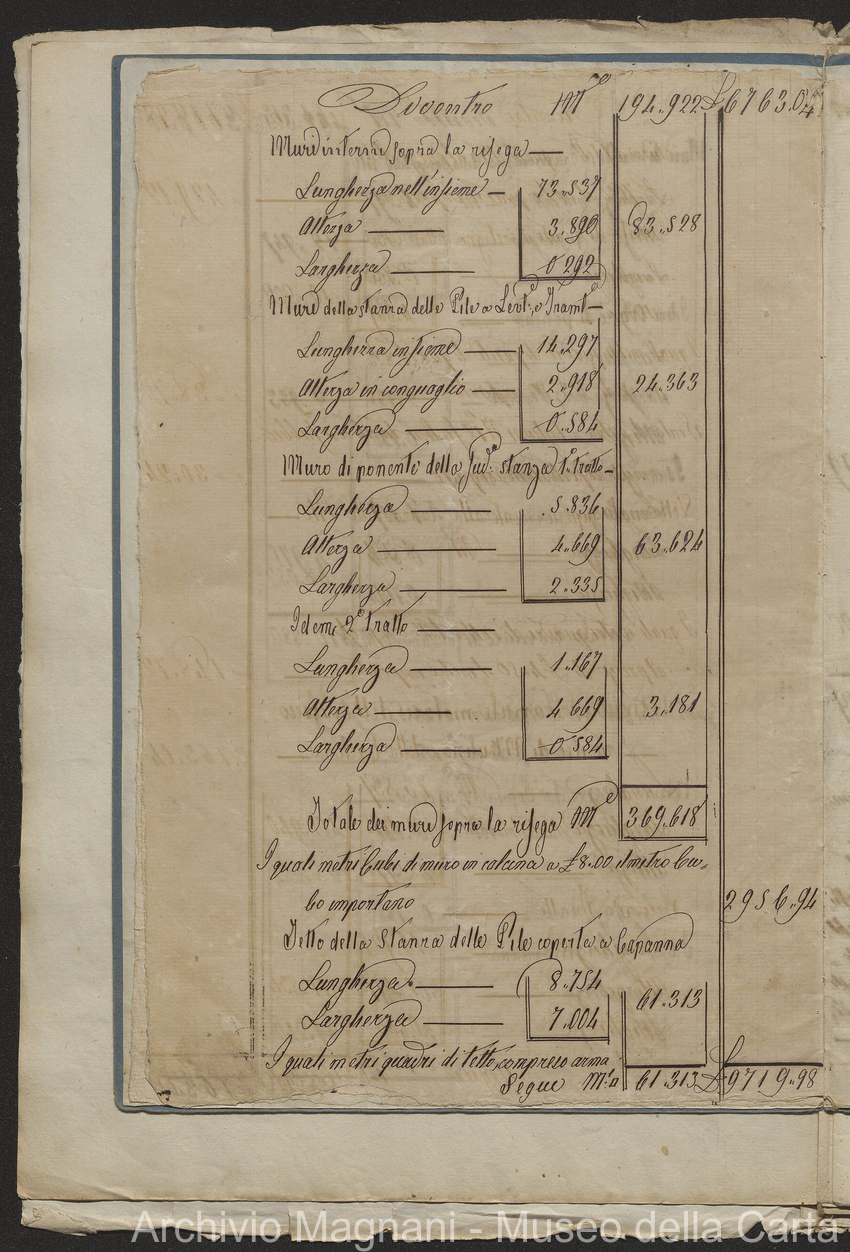 Di contro Mᵗᵉ 194.922 £ 6763.04
Muri interni sopra la risega —
Lungherza nell'insieme — 73.537
Alterza — 3.890 83.528
Largherza — 0.292
Muri della stanza delle Pile a Levᵗᵉ, e Tramᵗᵃ —
Lungherza insieme — 14.297
Alterza in conguaglio — 2.918 24.363
Largherza — 0.584
Muro di ponente della Sudᵃ: stanza 1º. tratto —
Lungherza — 5.836
Alterza — 4.669 63.624
Largherza — 2.335
Idem 2º tratto —
Lungherza — 1.167
Alterza — 4.669 3.181
Largherza — 0.584
Totale dei muri sopra la risega Mᵗⁱ 369.618
I quali metri Cubi di muro in calcina a £ 8.00 il metro Cu-
bo importano 2956.94
Tetto della Stanza delle Pile coperta a Capanna
Lungherza — 8.754
61.313
Largherza — 7.004
I quali metri quadri di tetto, compreso arma
Segue Mᵗ.q 61.313 £ 9719.98
Archivio Magnani - Museo della Carta